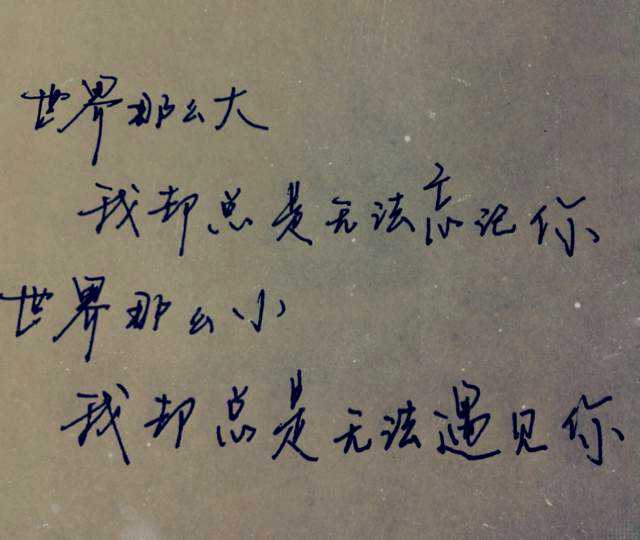 世界那么大
我却总是无法忘记你
世界那么小
我却总是无法遇见你